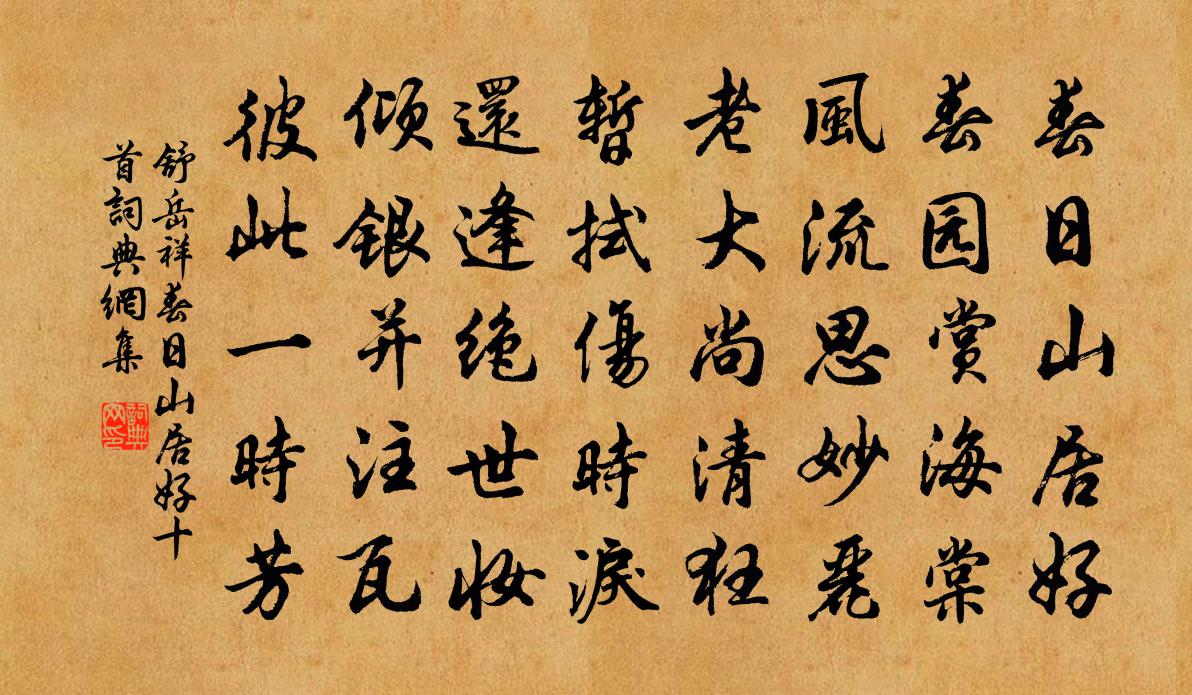 春日山居好
春园赏海棠
風流思妙麗
老大尚清狂
暫拭傷時淚
還逢绝世妝
傾銀并注瓦
彼此一時芳
舒岳祥春日山居好十
首詞典網集
詞典
网印